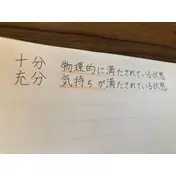 十分 物理的に満たされている状態
充分 気持ちが満たされている状態